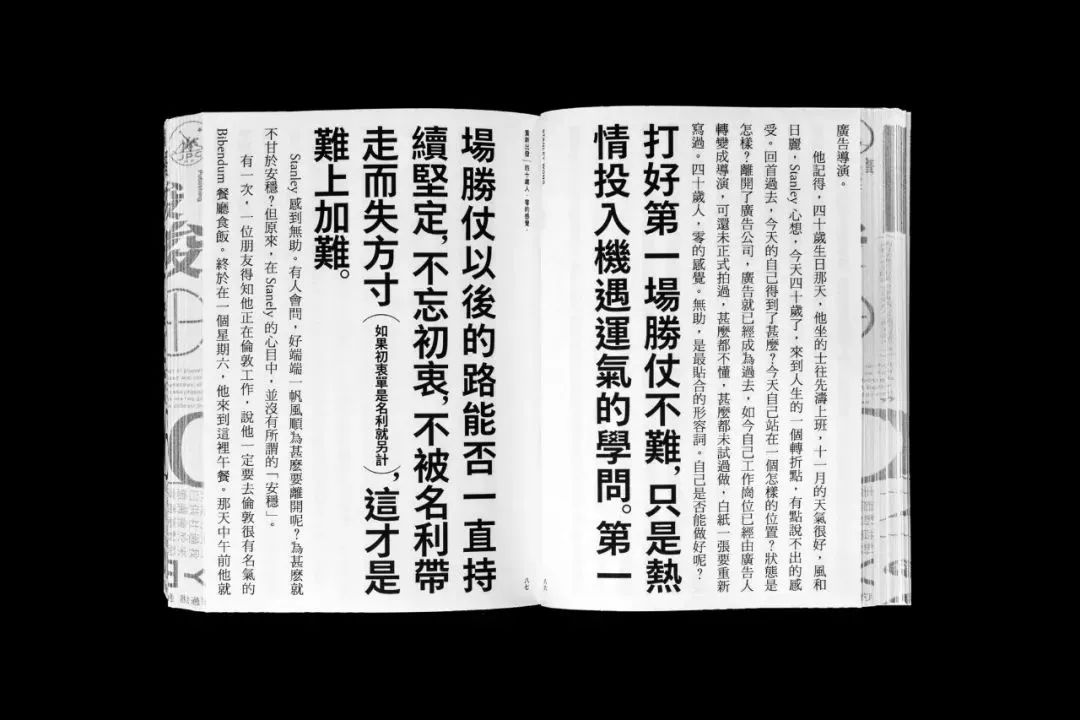 廣告導演。
他記得，四十歲生日那天，他坐的士往先濤上班，十一月的天氣很好，風和
日麗，Stanley 心想，今天四十歲了，來到人生的一個轉折點，有點說不出的感
受。回首過去，今天的自己得到了甚麼？今天自己站在一個怎樣的位置？狀態是
怎樣？離開了廣告公司，廣告就已經成為過去，如今自己工作崗位已經由廣告人
轉變成導演，可還未正式拍過，甚麼都不懂，甚麼都未試過做，白紙一張要重新
寫過。四十歲人，零的感覺。無助，是最貼合的形容詞。自己是否能做好呢？
打好第一場勝仗不難，只是熱
情投入機遇運氣的學問。第一
八六
重新出發，四十歲人，零的感覺。
八七
場勝仗以後的路能否一直持
續堅定，不忘初衷，不被名利帶
走而失方寸（如果初衷單是名利就另計），這才是
難上加難。
Stanley 感到無助。有人會問，好端端一帆風順為甚麼要離開呢？為甚麼就
不甘於安穩？但原來，在 Stanely 的心目中，並沒有所謂的「安穩」。
有一次，一位朋友得知他正在倫敦工作，說他一定要去倫敦很有名氣的
Bibendum 餐廳食飯。終於在一個星期六，他來到這裡午餐。那天中午前他就
Publishing